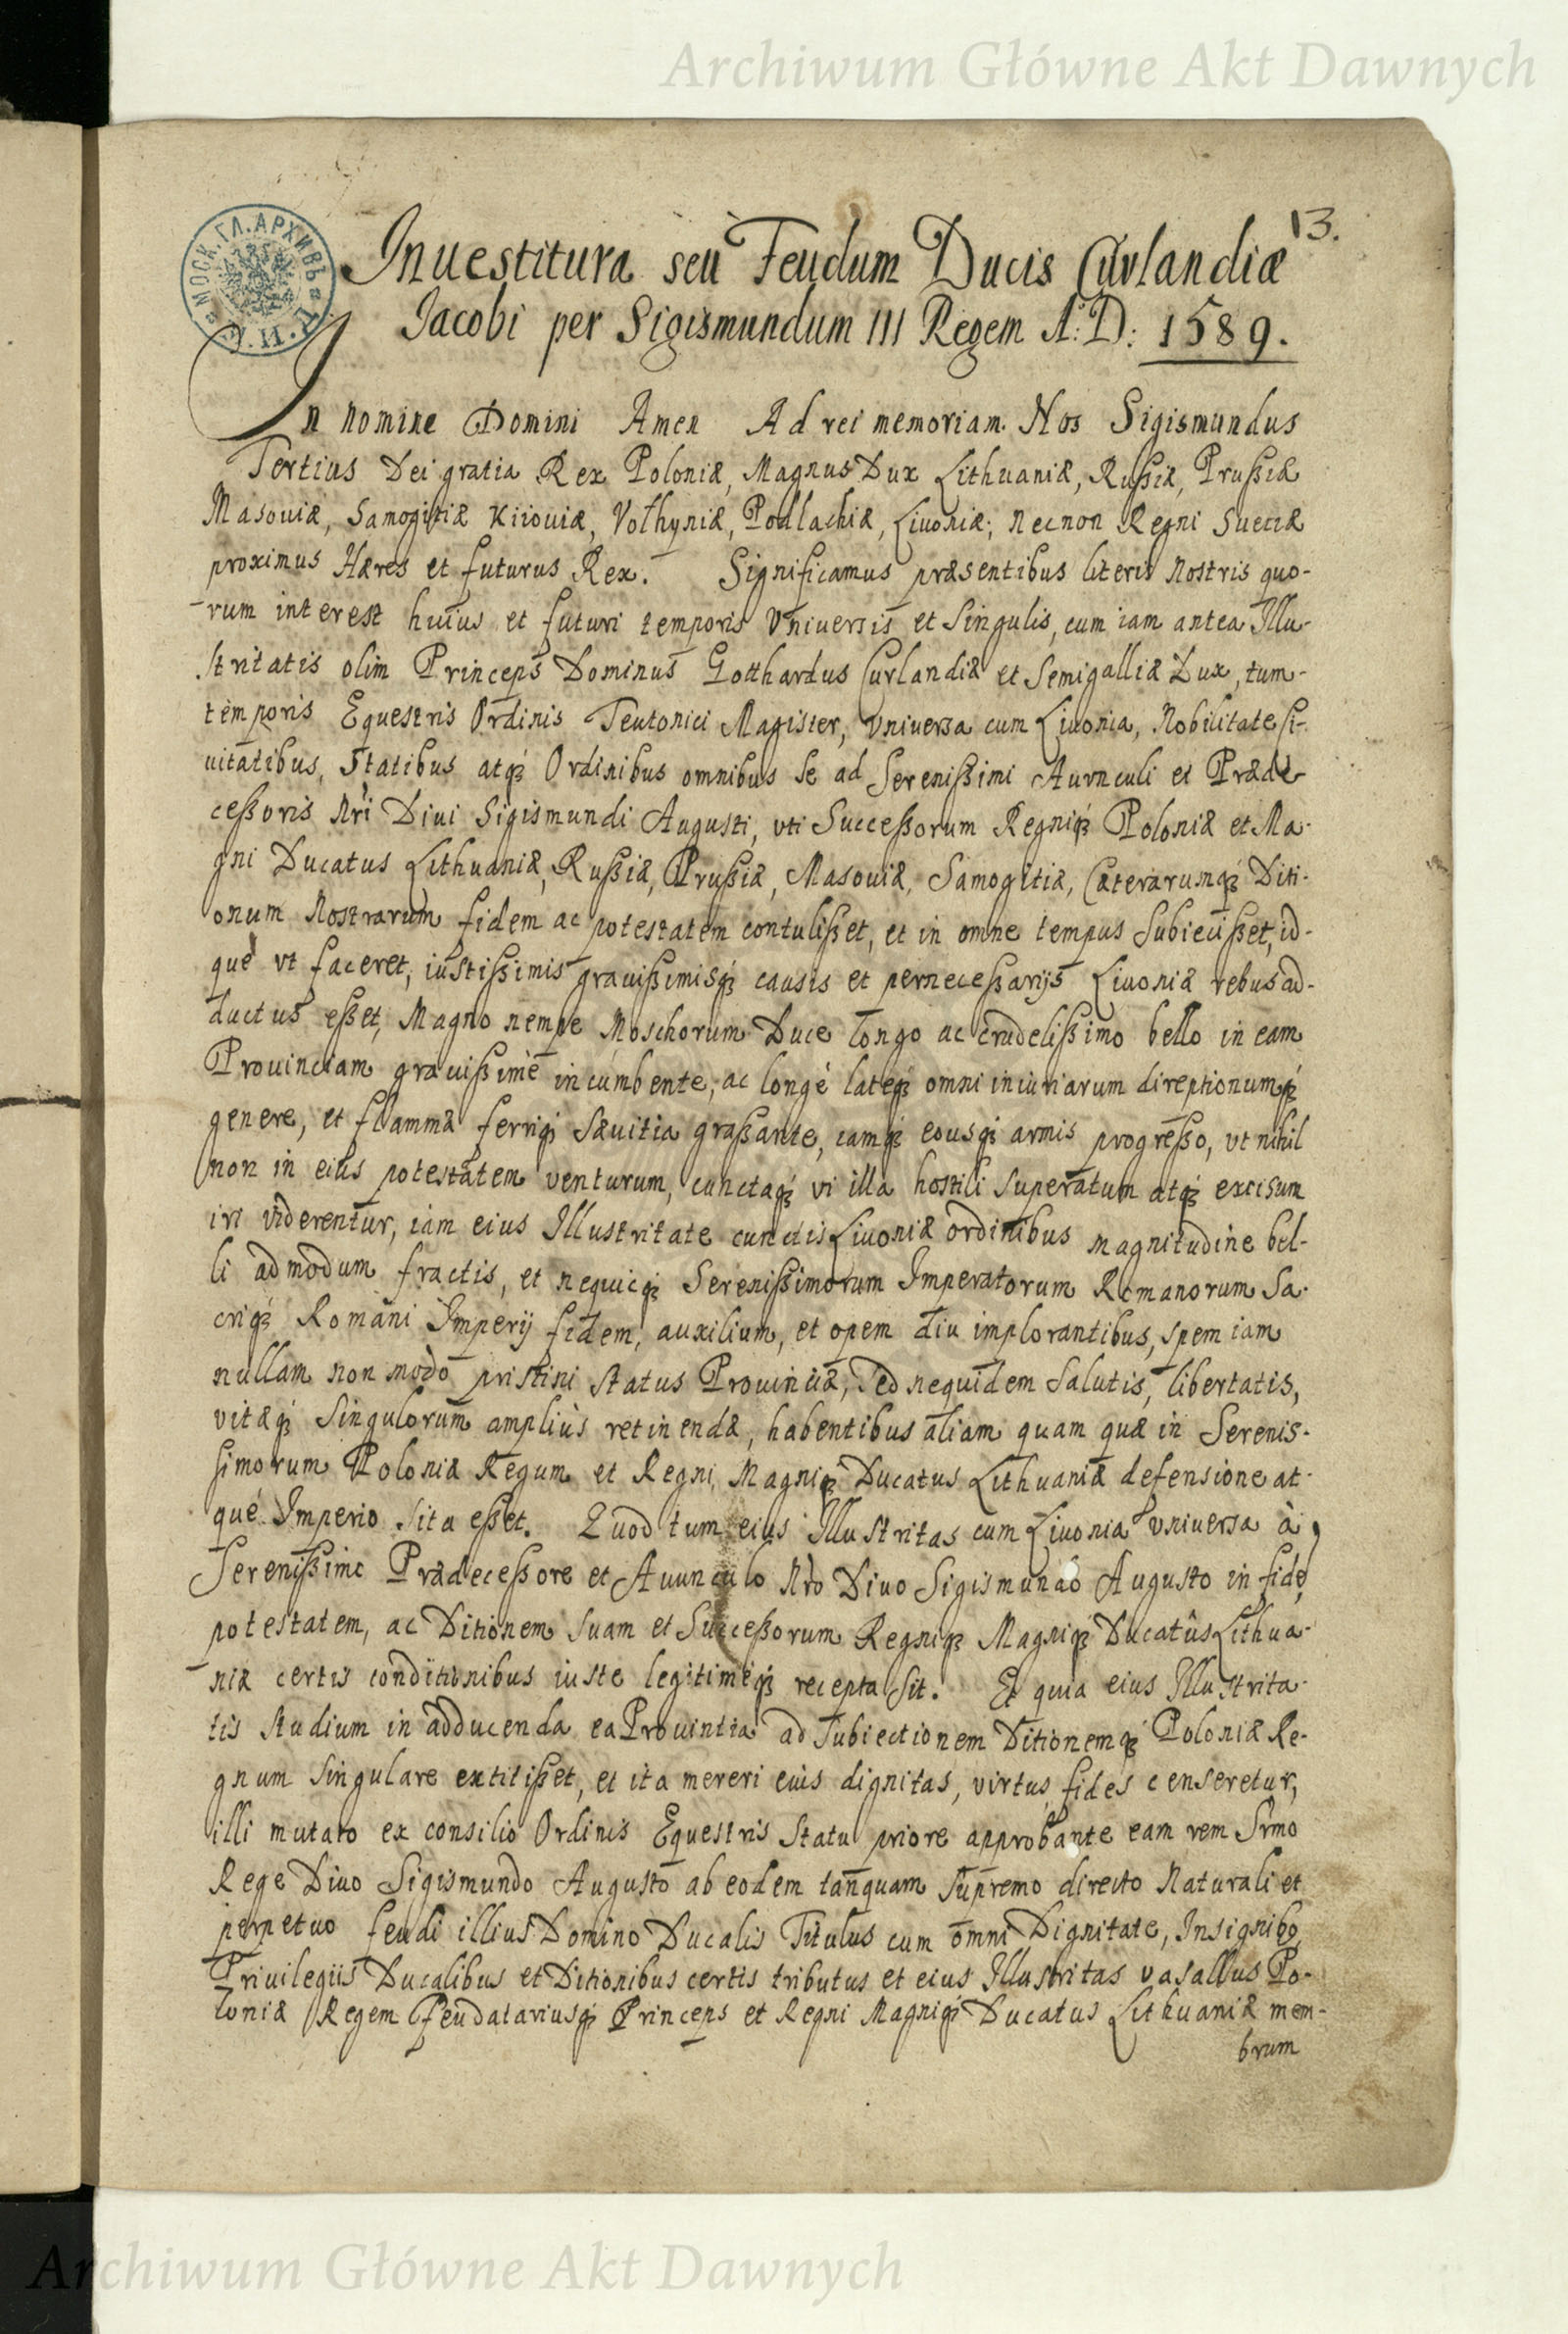 Archiwum Główne Akt Dawnych
13.
МОСК. ГЛ. АРХИВЪ
Inuestitura seu Feudum Ducis Curlandiæ
Iacobi per Sigismundum III Regem A: D: 1589.
In nomine Domini Amen Ad rei memoriam Nos Sigismundus
Tertius Dei gratia Rex Poloniæ, Magnus Dux Lithuaniæ, Rußiæ, Prußiæ
Masouiæ, Samogitiæ Kiiouiæ, Volhyniæ, Podlachiæ, Liuoniæ, necnon Regni Sueciæ
proximus Hæres et futurus Rex. Significamus præsentibus literis nostris quo-
rum interest huius et futuri temporis Vniuersis et singulis, cum iam antea Illu-
stritatis olim Princeps Dominus Gotthardus Curlandiæ et Semigalliæ Dux, tum-
temporis Equestris Ordinis Teutonici Magister, vniuersa cum Liuonia, Nobilitate Ci-
uitatibus, Statibus atq́ Ordinibus omnibus se ad Serenißimi Auunculi et Præde-
ceßoris Nri Diui Sigismundi Augusti, vti Succeßorum Regniq́ Poloniæ et Ma-
gni Ducatus Lithuaniæ, Rußiæ, Prußiæ, Masouiæ, Samogitiæ, Cæterarumq́ Diti-
onum Nostrarum fidem ac potestatem contulißet, et in omne tempus subiecißet, id-
què vt faceret, iustißimis grauißimisq́ causis et perneceßarijs Liuoniæ rebus ad-
ductus eßet, Magno nempe Moschorum Duce longo ac crudelißimo bello in eam
Prouinciam grauißimè incumbente, ac longè lateq́ omni iniuriarum direptionumq́
genere, et flammæ ferriq́ sæuitia graßante, iamq́ eousq́ armis progreßo, vt nihil
non in eius potestatem venturum, cunctaq́ vi illa hostili superatum atq́ excisum
iri viderentur, iam eius Illustritate cunctis Liuoniæ ordinibus magnitudine bel-
li admodum fractis, et nequicq́ Serenißimorum Imperatorum Romanorum Sa-
criq́ Romani Imperij fidem, auxilium, et opem diu implorantibus, spem iam
nullam non modò pristini status Prouinciæ, sed nequidem salutis, libertatis,
vitæq́ singulorum ampliùs retinendæ, habentibus aliam quam quæ in Serenis-
simorum Poloniæ Regum et Regni Magniq́ Ducatus Lithuaniæ defensione at-
què Imperio sita eßet. Quod tum eius Illustritas cum Liuonia vniuersa à
Serenißimo Prædeceßore et Auunculo Nro Diuo Sigismundo Augusto in fidē,
potestatem, ac Ditionem suam et Succeßorum Regniq́ Magniq́ Ducatûs Lithua-
niæ certis conditionibus iuste legitimèq́ recepta sit. Et quia eius Illustrita-
tis studium in adducenda ea Prouintia ad subiectionem Ditionemq́ Poloniæ Re-
gnum singulare extitißet, et ita mereri eius dignitas, virtus, fides censeretur,
illi mutato ex consilio Ordinis Equestris statu priore approbante eam rem Srmo
Rege Diuo Sigismundo Augusto ab eodem tanquam supremo directo Naturali et
perpetuo feudi illius Domino Ducalis Titulus cum omni Dignitate, Insignibꝫ
Priuilegiis Ducalibus et Ditionibus certis tributus et eius Illustritas vasallus Po-
loniæ Regem Feudatariusq́ Princeps et Regni Magniq́ Ducatus Lithuaniæ mem-
brum
Archiwum Główne Akt Dawnych